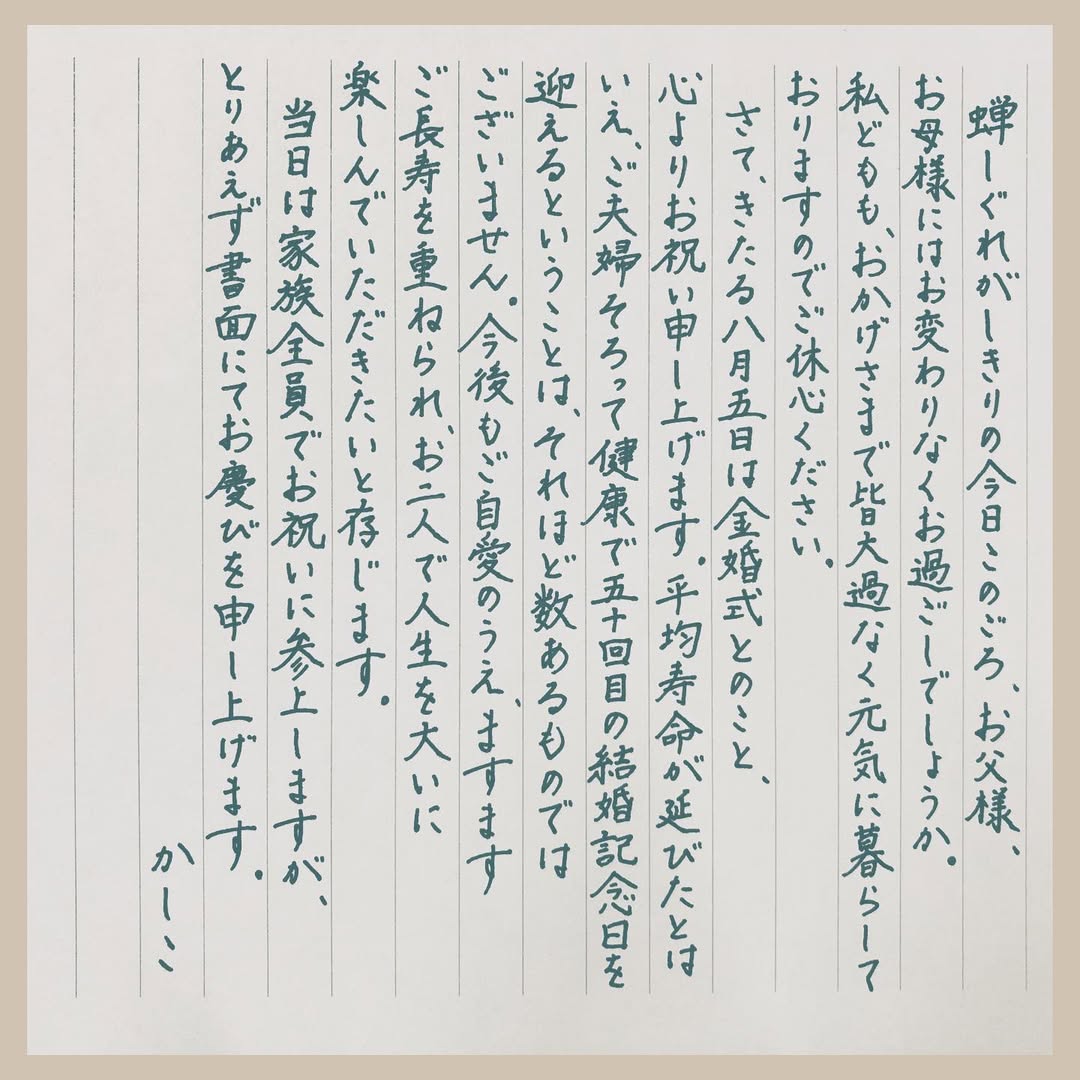 蝉しぐれがしきりの今日このごろ、お父様、
お母様にはお変わりなくお過ごしでしょうか。
私どもも、おかげさまで皆大過なく元気に暮らして
おりますのでご休心ください。
さて、きたる八月五日は金婚式とのこと、
心よりお祝い申し上げます。平均寿命が延びたとは
いえ、ご夫婦そろって健康で五十回目の結婚記念日を
迎えるということは、それほど数あるものでは
ございません。今後もご自愛のうえ、ますます
ご長寿を重ねられ、お二人で人生を大いに
楽しんでいただきたいと存じます。
当日は家族全員でお祝いに参上しますが、
とりあえず書面にてお慶びを申し上げます。
かしこ